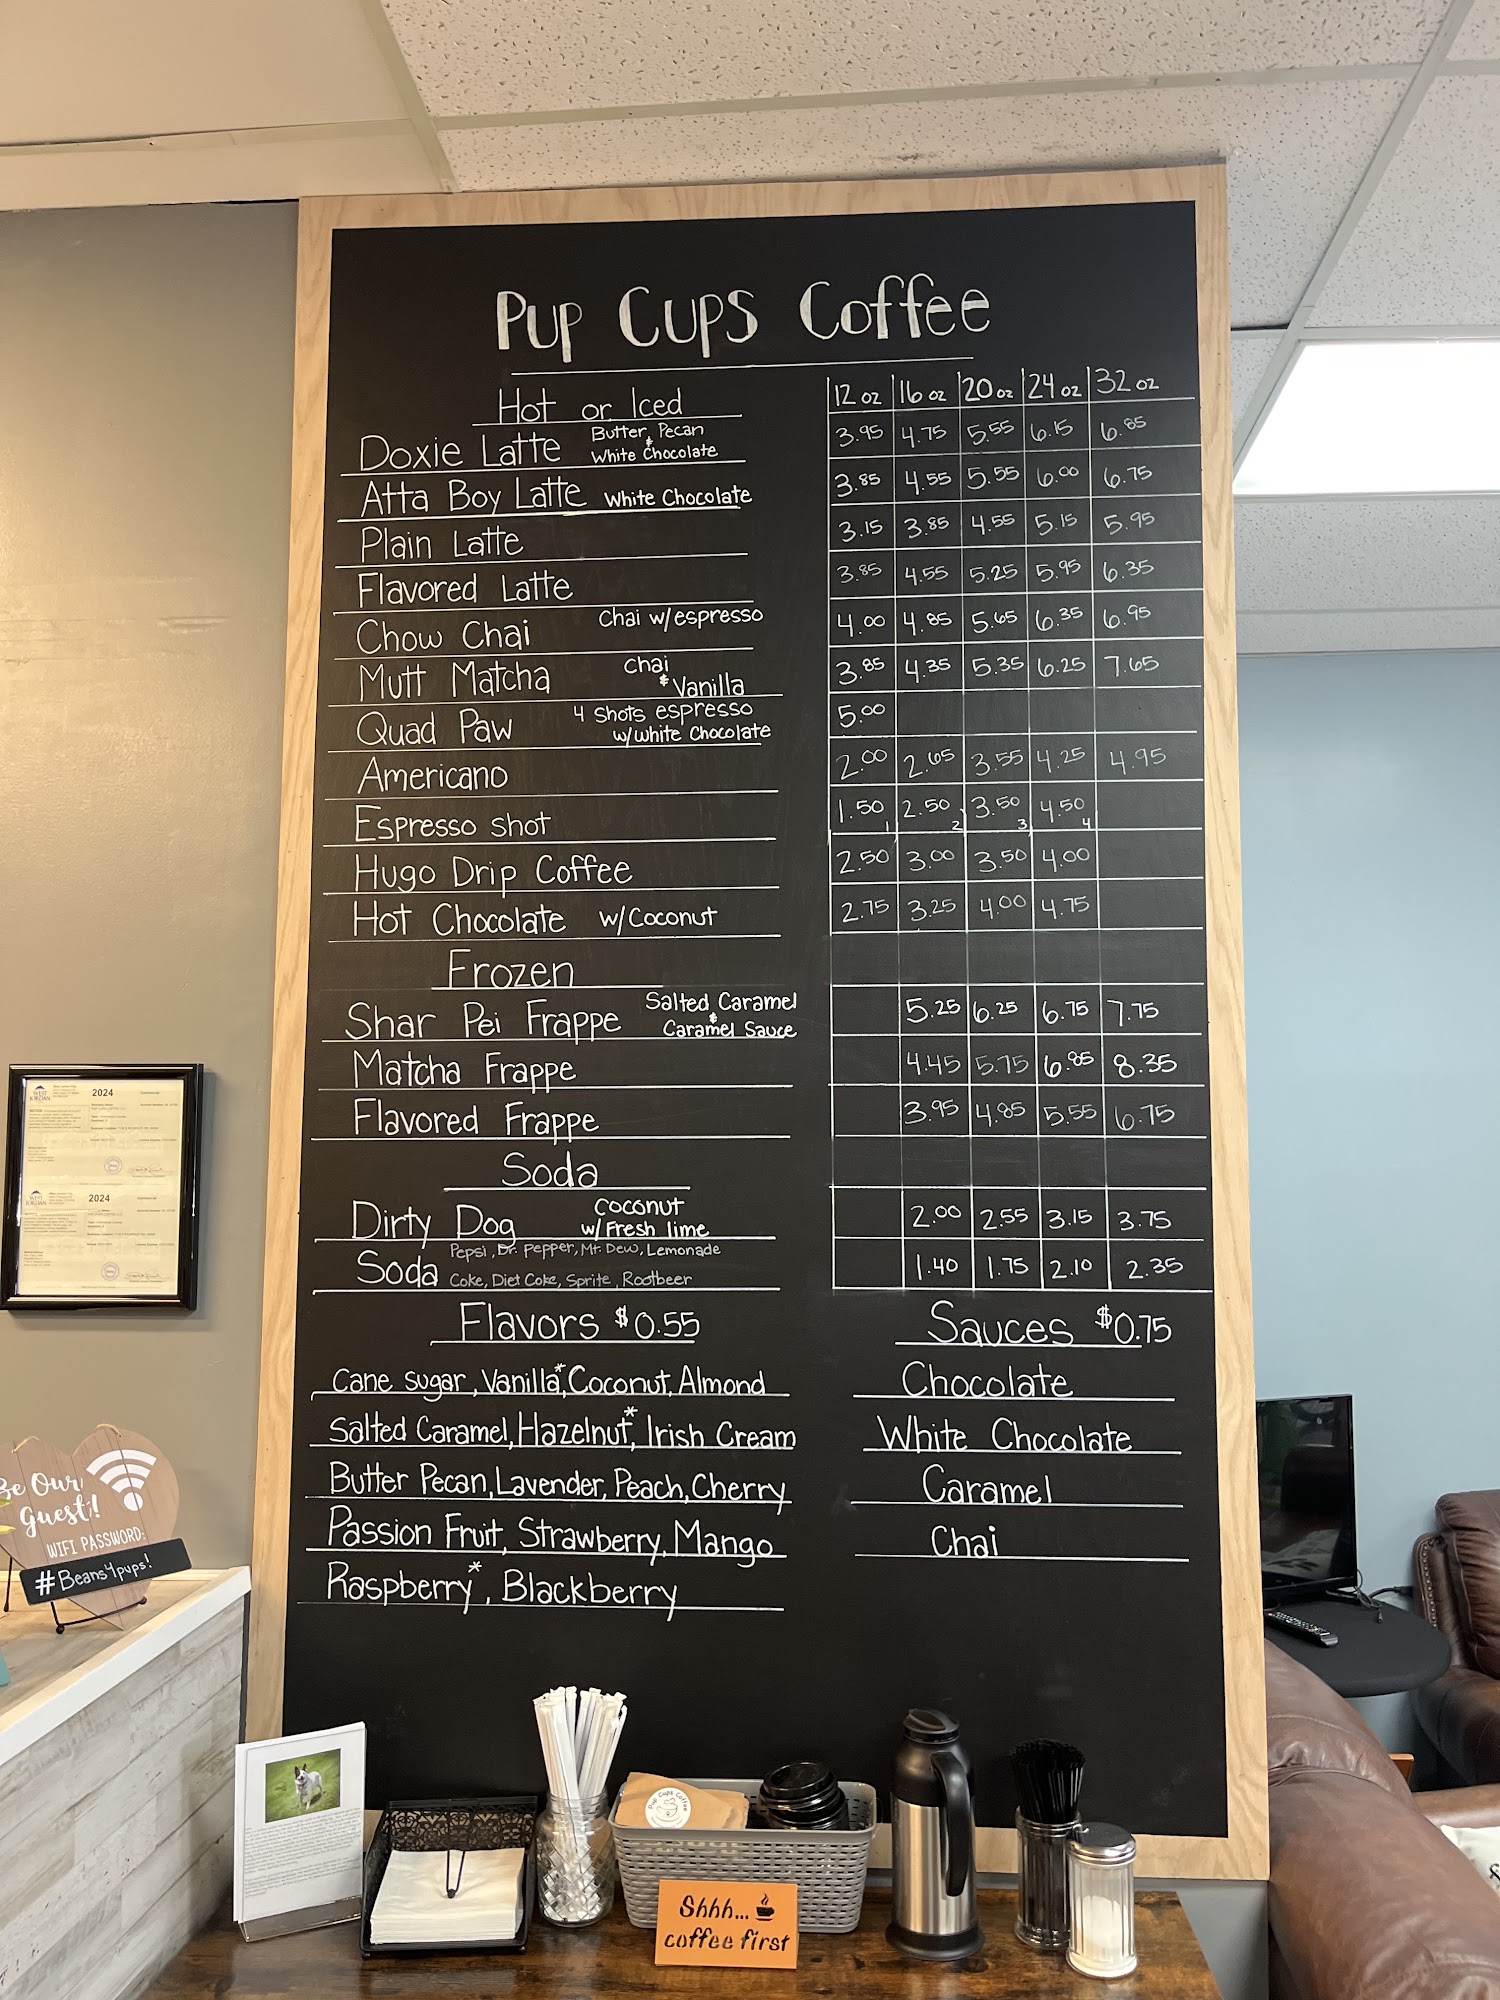 Pup Cups Coffee
Hot or Iced 12 oz 16 oz 20 oz 24 oz 32 oz
Doxie Latte Butter Pecan & White Chocolate 3.95 4.75 5.55 6.15 6.85
Atta Boy Latte White Chocolate 3.85 4.55 5.55 6.00 6.75
Plain Latte 3.15 3.85 4.55 5.15 5.95
Flavored Latte 3.85 4.55 5.25 5.95 6.35
Chow Chai Chai w/espresso 4.00 4.85 5.65 6.35 6.95
Mutt Matcha Chai & Vanilla 3.85 4.35 5.35 6.25 7.65
Quad Paw 4 Shots espresso w/white Chocolate 5.00
Americano 2.00 2.65 3.55 4.25 4.95
Espresso shot 1.50 1 2.50 2 3.50 3 4.50 4
Hugo Drip Coffee 2.50 3.00 3.50 4.00
Hot Chocolate w/Coconut 2.75 3.25 4.00 4.75
Frozen
Shar Pei Frappe Salted Caramel & Caramel Sauce 5.25 6.25 6.75 7.75
Matcha Frappe 4.45 5.75 6.85 8.35
Flavored Frappe 3.95 4.85 5.55 6.75
Soda
Dirty Dog Coconut w/Fresh lime 2.00 2.55 3.15 3.75
Soda Pepsi, Dr. Pepper, Mt. Dew, Lemonade Coke, Diet Coke, Sprite, Rootbeer 1.40 1.75 2.10 2.35
Flavors $0.55
Cane Sugar, Vanilla*, Coconut, Almond
Salted Caramel, Hazelnut*, Irish Cream
Butter Pecan, Lavender, Peach, Cherry
Passion Fruit, Strawberry, Mango
Raspberry*, Blackberry
Sauces $0.75
Chocolate
White Chocolate
Caramel
Chai
WEST JORDAN 2024
WEST JORDAN 2024
Be Our
Guest!
WIFI PASSWORD:
#Beans4pups!
Pup Cups Coffee
Shhh...
coffee first